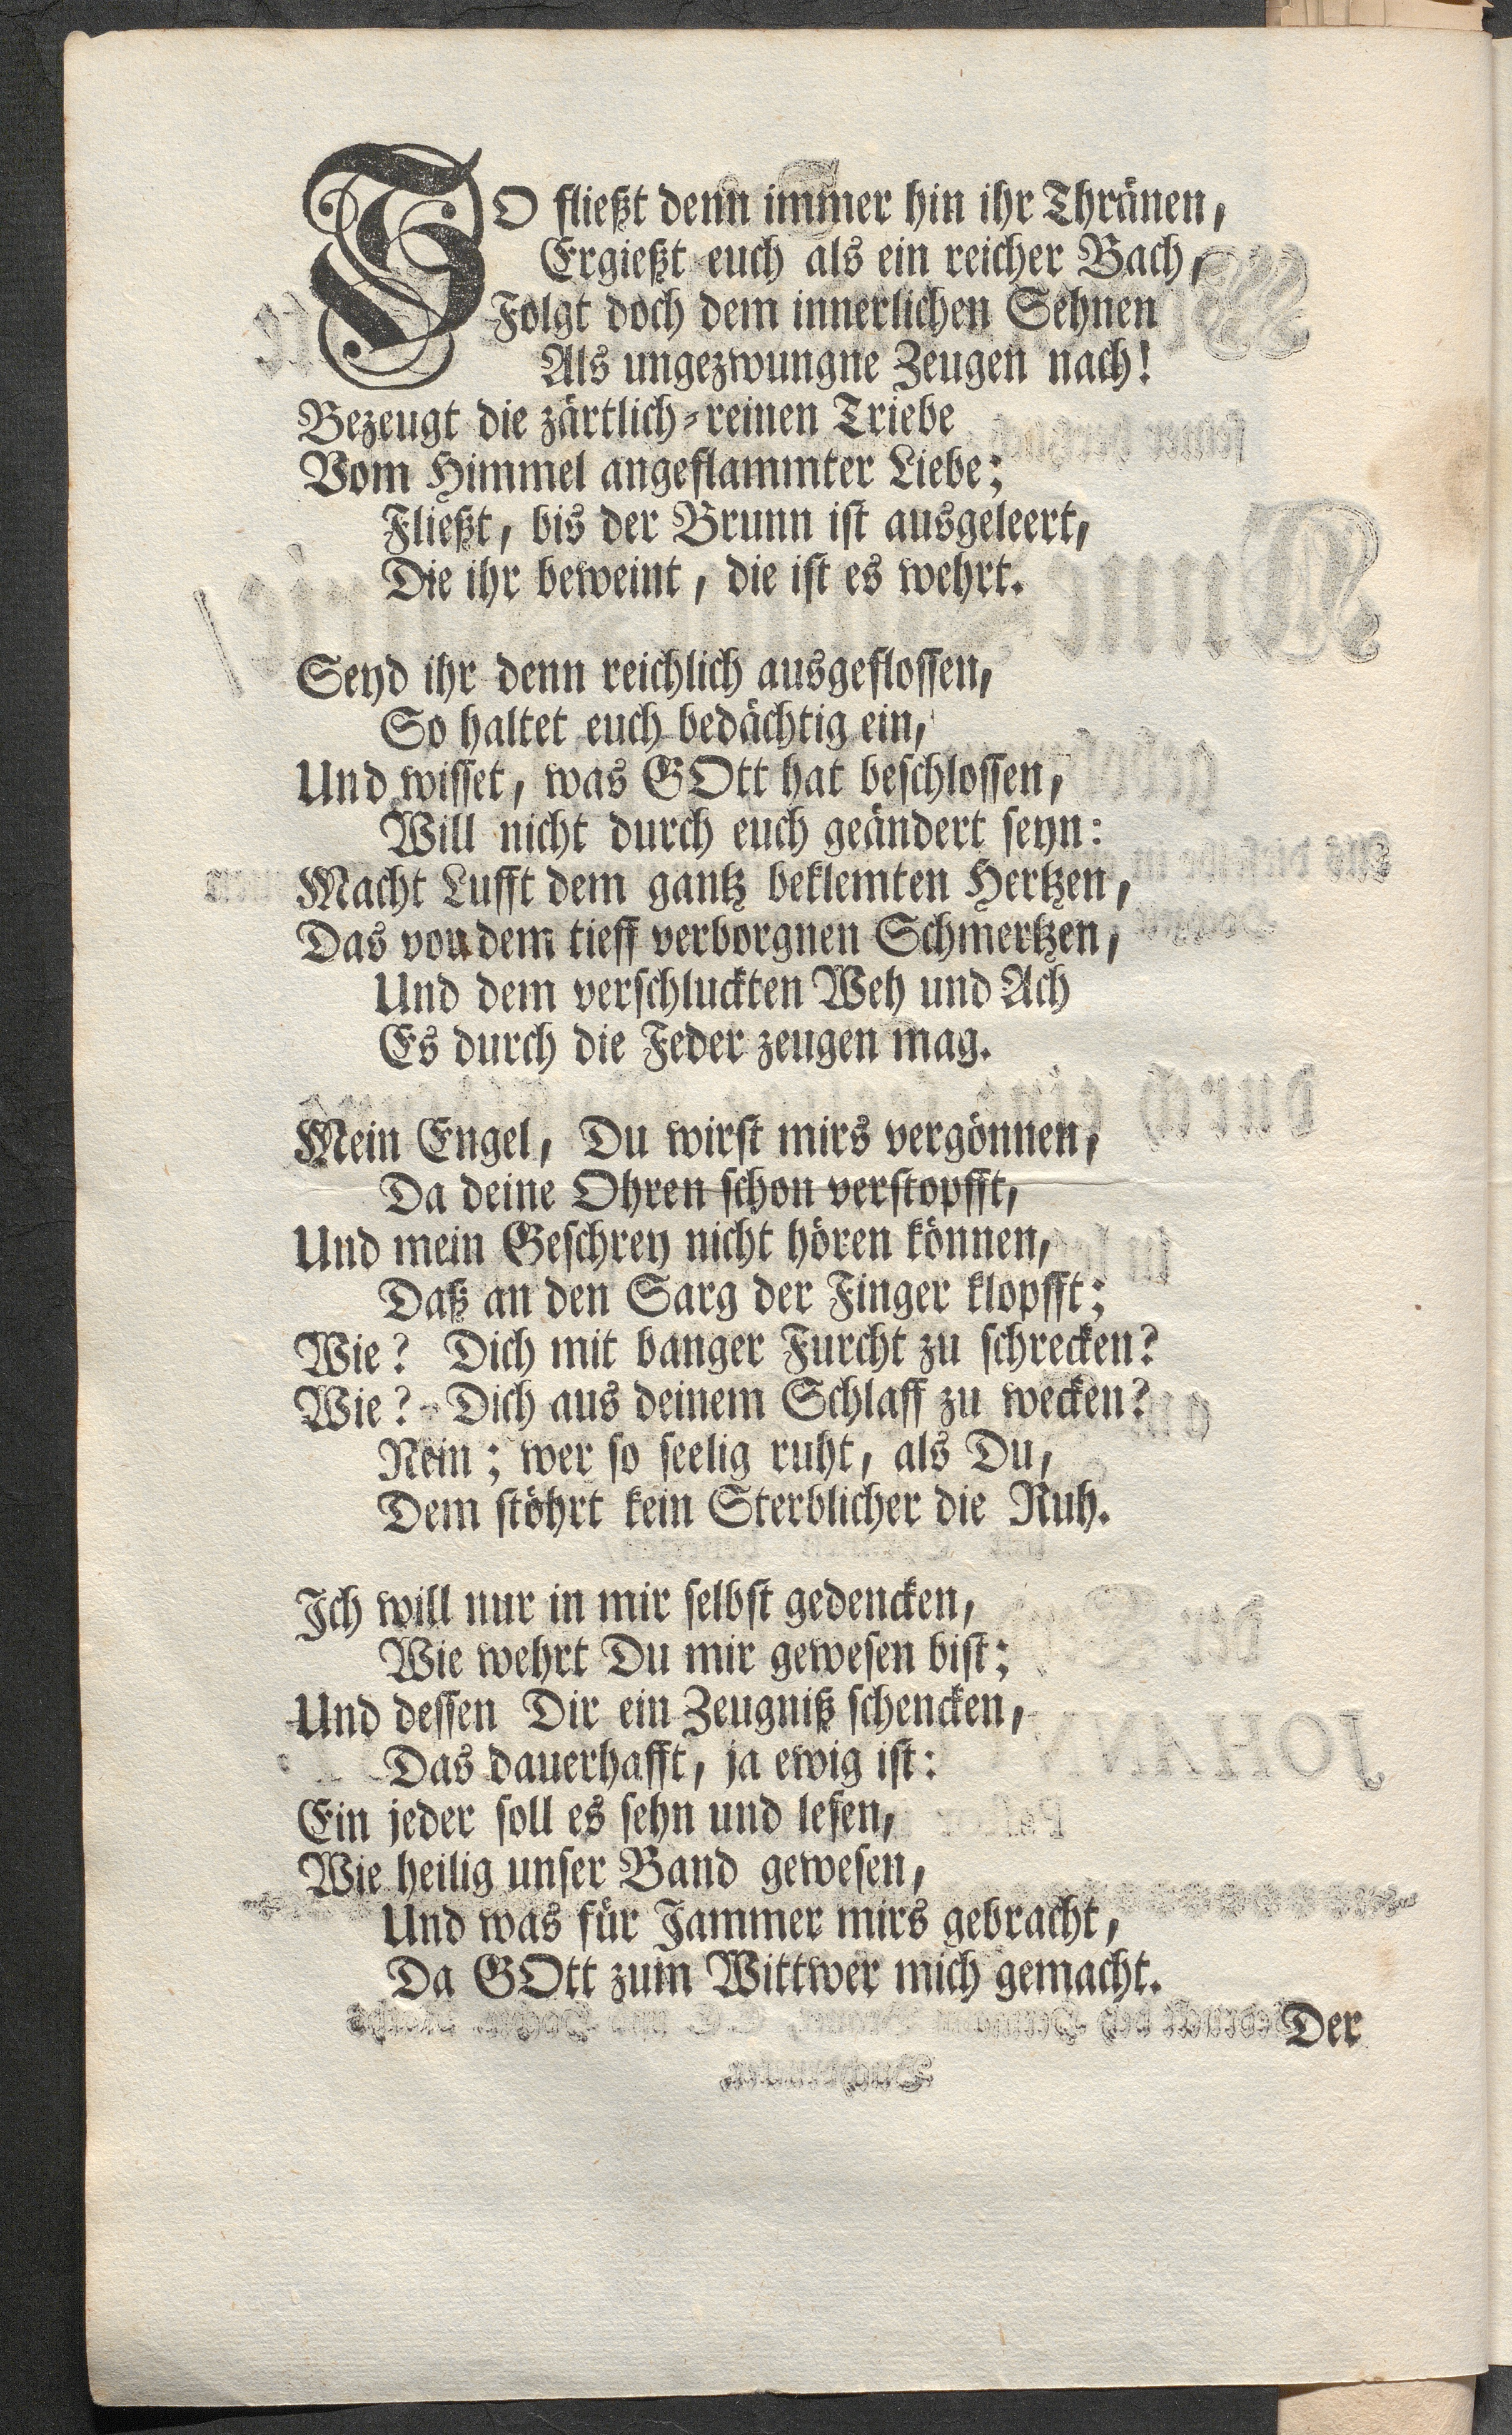 SO fließt denn immer hin ihr Thränen,
Ergießt euch als ein reicher Bach,
Folgt doch dem innerlichen Sehnen
Als ungezwungne Zeugen nach!
Bezeugt die zärtlich-reinen Triebe
Vom Himmel angeflammter Liebe;
Fließt, bis der Brunn ist ausgeleert,
Die ihr beweint, die ist es wehrt.
Seyd ihr denn reichlich ausgeflossen,
So haltet euch bedächtig ein,
Und wisset, was GOtt hat beschlossen,
Will nicht durch euch geändert seyn:
Macht Lufft dem gantz beklemten Hertzen,
Das von dem tieff verborgnen Schmertzen,
Und dem verschluckten Weh und Ach
Es durch die Feder zeugen mag.
Mein Engel, Du wirst mirs vergönnen,
Da deine Ohren schon verstopfft,
Und mein Geschrey nicht hören können,
Daß an den Sarg der Finger klopfft;
Wie? Dich mit banger Furcht zu schrecken?
Wie? Dich aus deinem Schlaff zu wecken?
Nein; wer so seelig ruht, als Du,
Dem stöhrt kein Sterblicher die Ruh.
Ich will nur in mir selbst gedencken,
Wie wehrt Du mir gewesen bist;
Und dessen Dir ein Zeugniß schencken,
Das dauerhafft, ja ewig ist:
Ein jeder soll es sehn und lesen,
Wie heilig unser Band gewesen,
Und was für Jammer mirs gebracht,
Da GOtt zum Wittwer mich gemacht.
Der